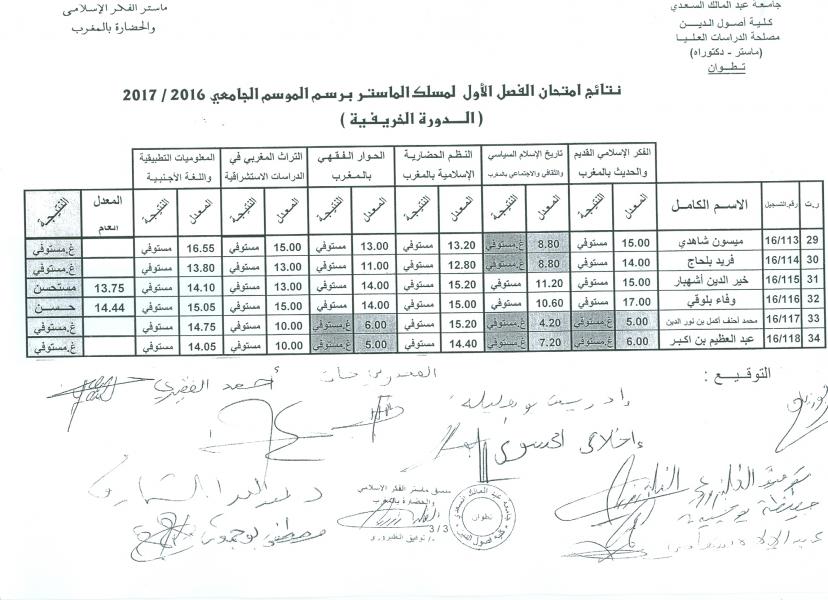 جامعة عبد المالك السعدي
كلية أصول الدين
مصلحة الدراسات العليا
(ماستر - دكتوراه)
تطوان
ماستر الفكر الإسلامي
والحضارة بالمغرب
نتائج امتحان الفصل الأول لمسلك الماستر برسم الموسم الجامعي 2016 / 2017
( الدورة الخريفية )
الفكر الإسلامي القديم والحديث بالمغرب
تاريخ الإسلام السياسي والثقافي والاجتماعي بالمغرب
النظم الحضارية الإسلامية بالمغرب
الحوار الفقهي بالمغرب
التراث المغربي في الدراسات الاستشراقية
المعلوميات التطبيقية واللغة الأجنبية
ر.ت رقم التسجيل الاسم الكامل المعدل النتيجة المعدل النتيجة المعدل النتيجة المعدل النتيجة المعدل النتيجة المعدل النتيجة المعدل العام النتيجة
29 16/113 ميسون شاهدي 15.00 مستوفي 8.80 غ.مستوفي 13.20 مستوفي 13.00 مستوفي 15.00 مستوفي 16.55 مستوفي غ.مستوفي
30 16/114 فريد بلحاج 14.00 مستوفي 8.80 غ.مستوفي 12.80 مستوفي 11.00 مستوفي 13.00 مستوفي 13.80 مستوفي غ.مستوفي
31 16/115 خير الدين أشهبار 15.00 مستوفي 11.20 مستوفي 15.20 مستوفي 14.00 مستوفي 13.00 مستوفي 14.10 مستوفي 13.75 مستحسن
32 16/116 وفاء بلوقي 17.00 مستوفي 10.60 مستوفي 15.00 مستوفي 14.00 مستوفي 15.00 مستوفي 15.05 مستوفي 14.44 حسن
33 16/117 محمد أحنف أكمل بن نور الدين 5.00 غ.مستوفي 4.20 غ.مستوفي 15.20 مستوفي 6.00 غ.مستوفي 10.00 مستوفي 14.75 مستوفي غ.مستوفي
34 16/118 عبد العظيم بن اكبر 6.00 غ.مستوفي 7.20 غ.مستوفي 14.40 مستوفي 5.00 غ.مستوفي 10.00 مستوفي 14.05 مستوفي غ.مستوفي
التوقيع :
أحمد الفقيري
منسق ماستر الفكر الإسلامي
والحضارة بالمغرب
تطوان
3/3